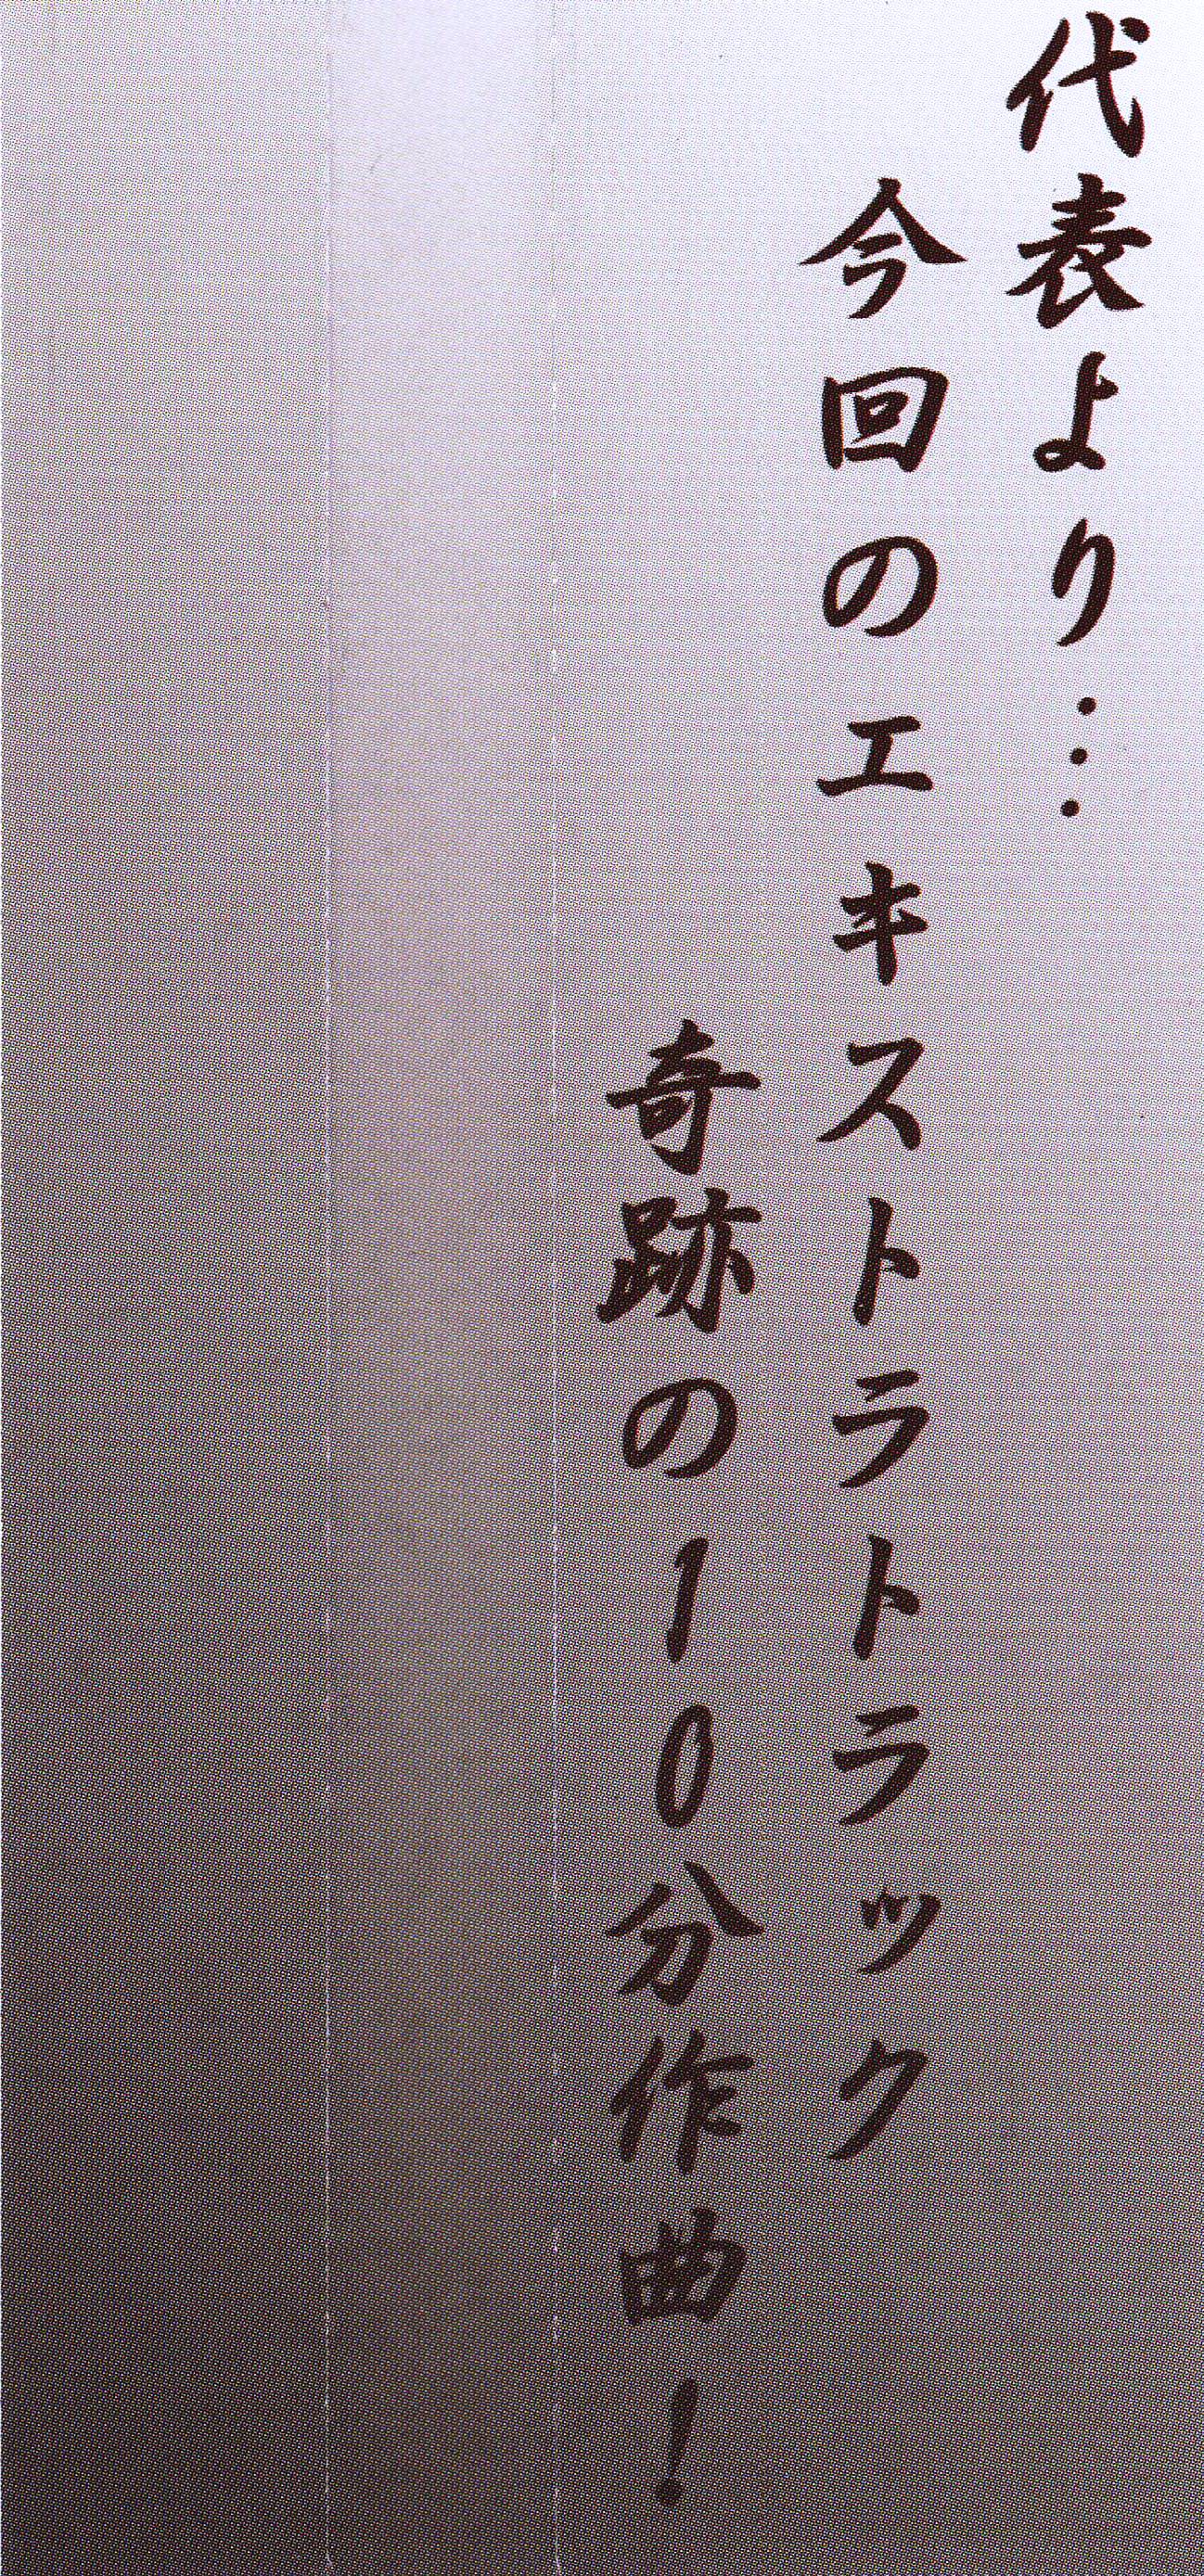 代表より…
今回のエキストラトラック
奇跡の10分作曲!